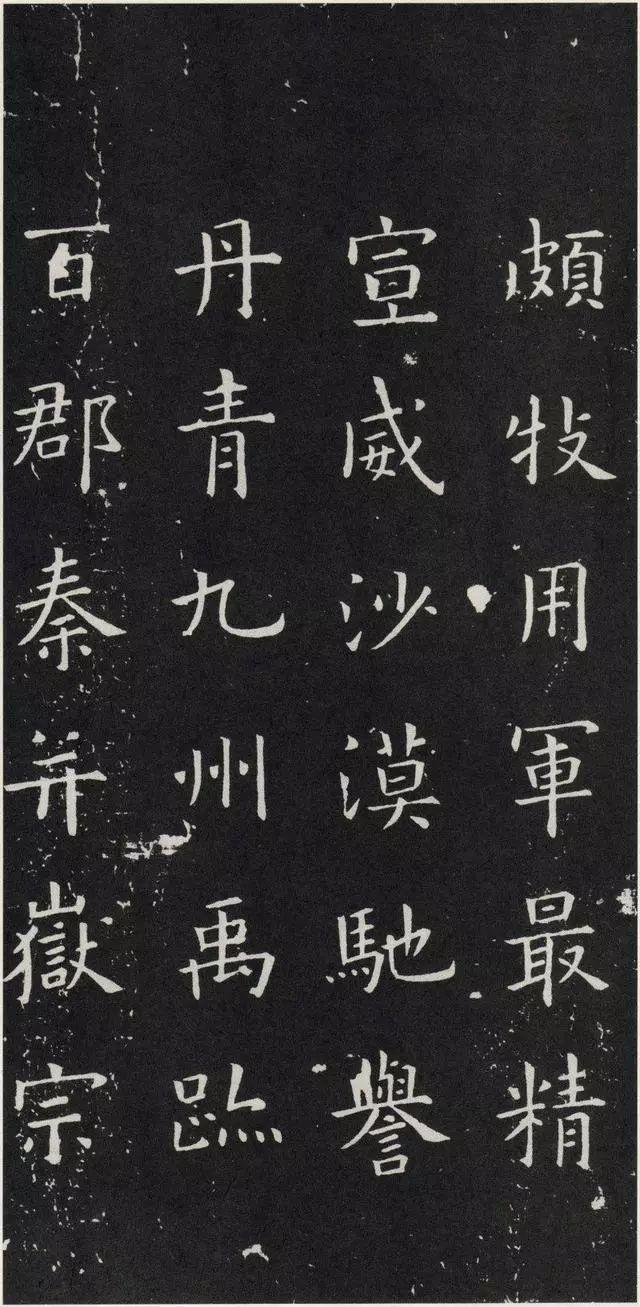 頗牧用軍最精
宣威沙漠馳譽
丹青九州禹跡
百郡秦并嶽宗